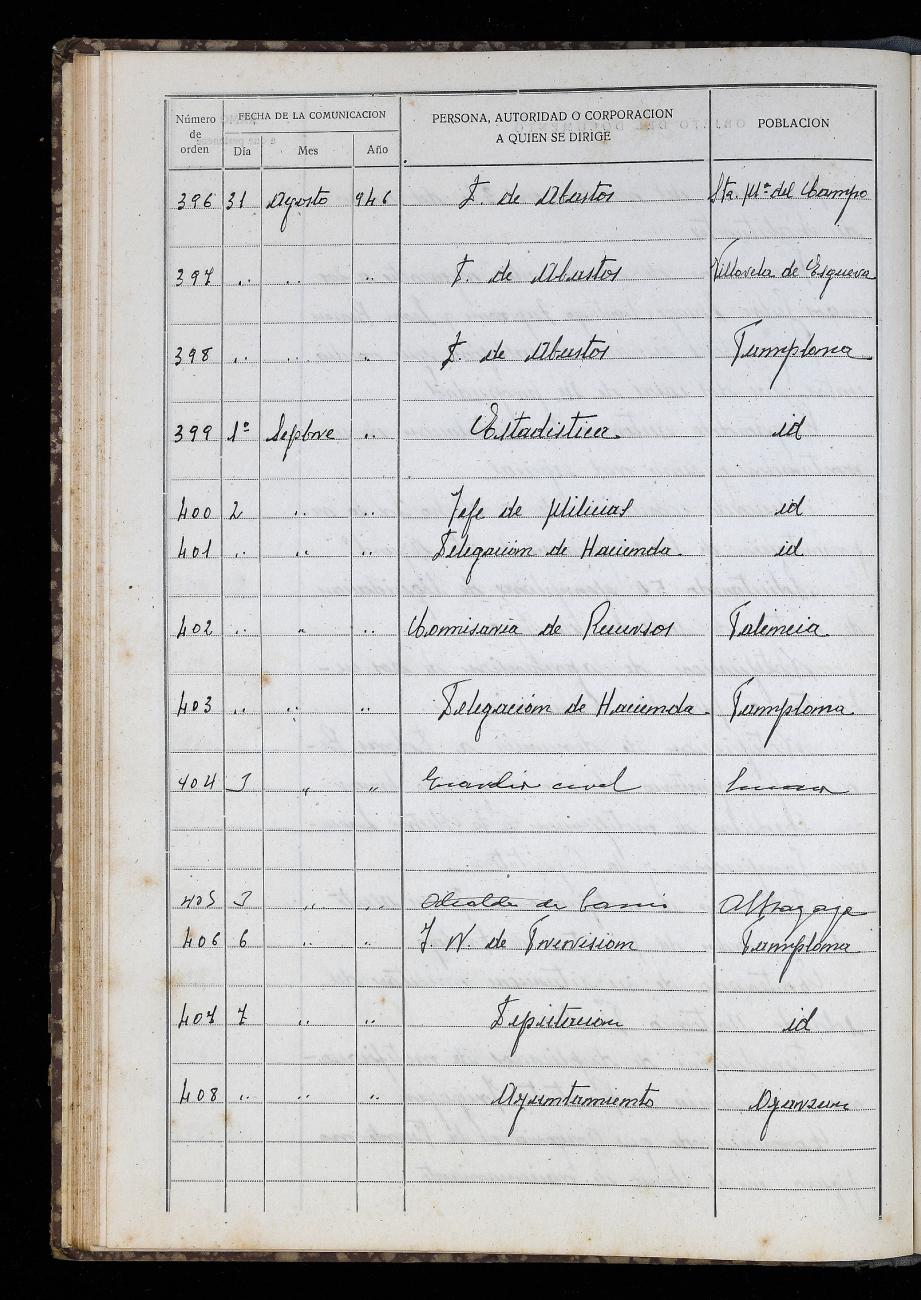 Número de orden
FECHA DE LA COMUNICACION
Día Mes Año
PERSONA, AUTORIDAD O CORPORACION
A QUIEN SE DIRIGE
POBLACION
396 31 Agosto 946 D. de Abastos Sta. Mª del Campo
397 .. .. D. de Abastos Villovela de Esgueva
398 .. .. .. D. de Abastos Pamplona
399 1º Sepbre .. Estadistica id
400 2 .. .. Jefe de Milicias id
401 .. .. .. Delegación de Hacienda id
402 .. .. .. Comisaria de Recursos Palencia
403 .. .. .. Delegación de Hacienda Pamplona
404 3 " " Guardia civil
405 3 .. .. Alcalde de barrio
406 6 .. .. I. N. de Prevision Pamplona
407 7 .. .. Diputacion id
408 .. .. .. Ayuntamiento Oyarzun